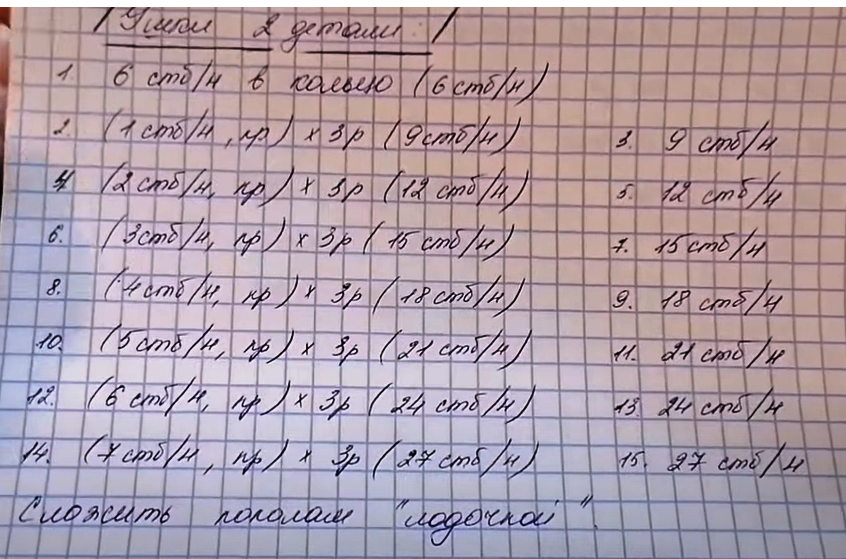 Ушки 2 детали:
1. 6 стб/н в кольцо (6 стб/н)
2. (1 стб/н, пр) х 3р (9стб/н) 3. 9 стб/н
4. (2 стб/н, пр) х 3р (12 стб/н) 5. 12 стб/н
6. (3стб/н, пр) х 3р (15 стб/н) 7. 15 стб/н
8. (4стб/н, пр) х 3р (18 стб/н) 9. 18 стб/н
10. (5стб/н, пр) х 3р (21 стб/н) 11. 21 стб/н
12. (6 стб/н, пр) х 3р (24 стб/н) 13. 24 стб/н
14. (7стб/н, пр) х 3р (27 стб/н) 15. 27 стб/н
Сложить пополам "лодочкой".